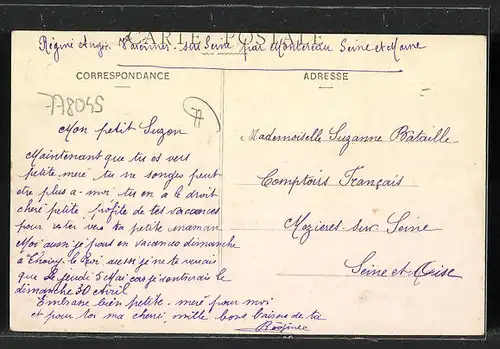 CARTE POSTALE
Régine Varennes sur Seine par Montereau Seine et Marne
CORRESPONDANCE
ADRESSE
Mon petit Suzon
Maintenant que tu es vers
petite meré tu ne songes peut
etre plus a moi tu en a le droit
cheré petite profite de tes vaccances
pour rester vers ta petite maman
Moi aussi je pars en vacances dimanche
à Choisy le Roi aussi je ne te verais
que le jeudi 5 Mai car je rentrerais le
dimanche 30 Avril
Embrasse bien petite meré pour moi
et pour toi ma cheré mille bons baisers de ta
Mademoiselle Suzanne Bataille
Comptoirs Français
Mezieres sur Seine
Seine et Oise